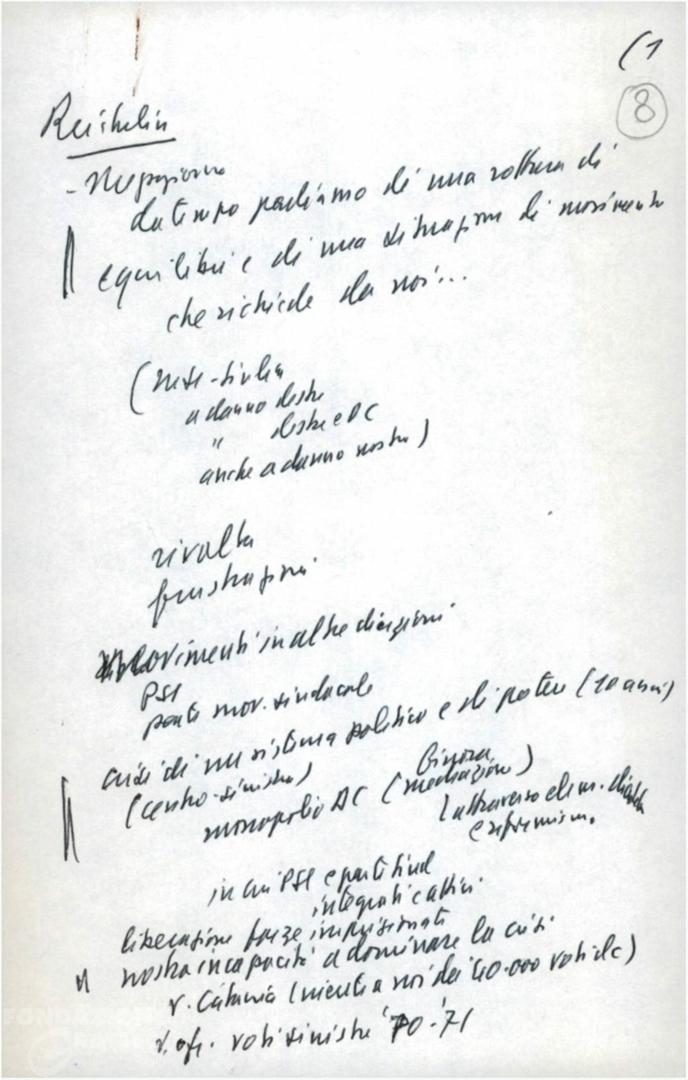 (1
8
Reichelin
- Mezzogiorno
da tempo parliamo di una rottura di
equilibri e di una situazione di movimento
che richiede da noi...
(
a danno destre
" destre e DC
anche a danno nostro)
rivolta
frustrazioni
movimenti in altre direzioni
PSI
parte mov. sindacale
crisi di un sistema politico e di potere (10 anni)
(centro-sinistra)
monopolio DC (mediazione)
(attraverso elem.
estremism.
in cui PSI e parte sind
integrati e attivi
liberazione forze imprigionate
nostra incapacità a dominare la crisi
v. Catania (niente a noi dei 40.000 voti dc)
v. voti sinistre '70-'71